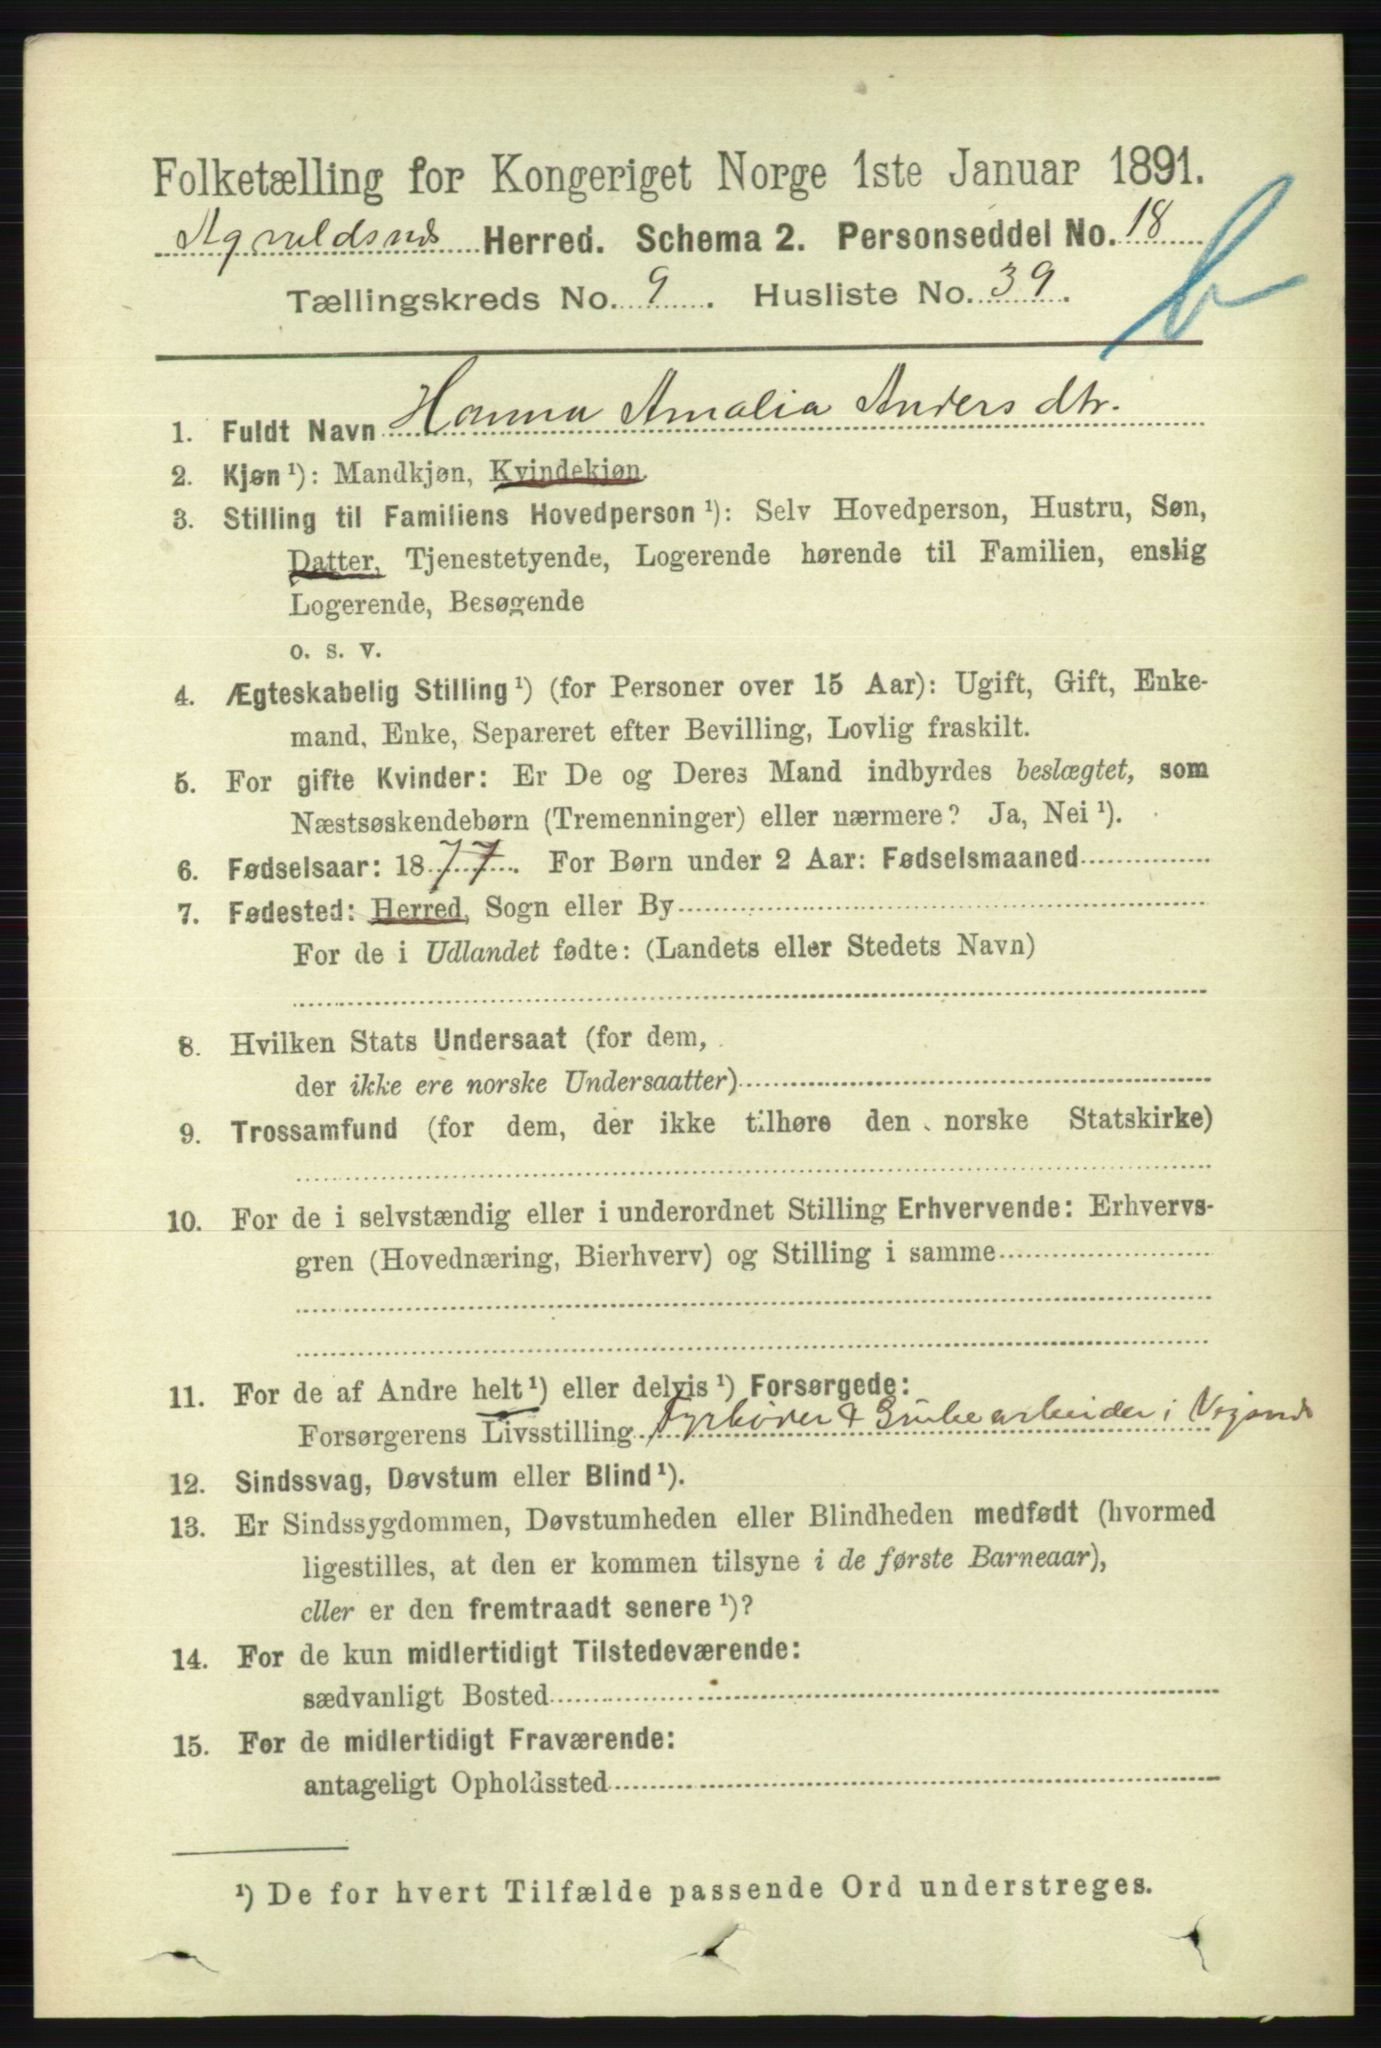 Folketælling for Kongeriget Norge 1ste Januar 1891.
Herred. Schema 2. Personseddel No. 18
Tællingskreds No. 9. Husliste No. 39.
b
1. Fuldt Navn Hanna Amalia Andersdtr.
2. Kjøn ¹): Mandkjøn, Kvindekjøn.
3. Stilling til Familiens Hovedperson ¹): Selv Hovedperson, Hustru, Søn,
Datter, Tjenestetyende, Logerende hørende til Familien, enslig
Logerende, Besøgende
o. s. v.
4. Ægteskabelig Stilling ¹) (for Personer over 15 Aar): Ugift, Gift, Enke-
mand, Enke, Separeret efter Bevilling, Lovlig fraskilt.
5. For gifte Kvinder: Er De og Deres Mand indbyrdes beslægtet, som
Næstsøskendebørn (Tremenninger) eller nærmere? Ja, Nei ¹).
6. Fødselsaar: 1877. For Børn under 2 Aar: Fødselsmaaned
7. Fødested: Herred, Sogn eller By
For de i Udlandet fødte: (Landets eller Stedets Navn)
8. Hvilken Stats Undersaat (for dem,
der ikke ere norske Undersaatter)
9. Trossamfund (for dem, der ikke tilhøre den norske Statskirke)
10. For de i selvstændig eller i underordnet Stilling Erhvervende: Erhvervs-
gren (Hovednæring, Bierhverv) og Stilling i samme
11. For de af Andre helt ¹) eller delvis ¹) Forsørgede:
Forsørgerens Livsstilling Fyrbøder & Grubearbeider i
12. Sindssvag, Døvstum eller Blind ¹).
13. Er Sindssygdommen, Døvstumheden eller Blindheden medfødt (hvormed
ligestilles, at den er kommen tilsyne i de første Barneaar),
eller er den fremtraadt senere ¹)?
14. For de kun midlertidigt Tilstedeværende:
sædvanligt Bosted
15. For de midlertidigt Fraværende:
antageligt Opholdssted
¹) De for hvert Tilfælde passende Ord understreges.